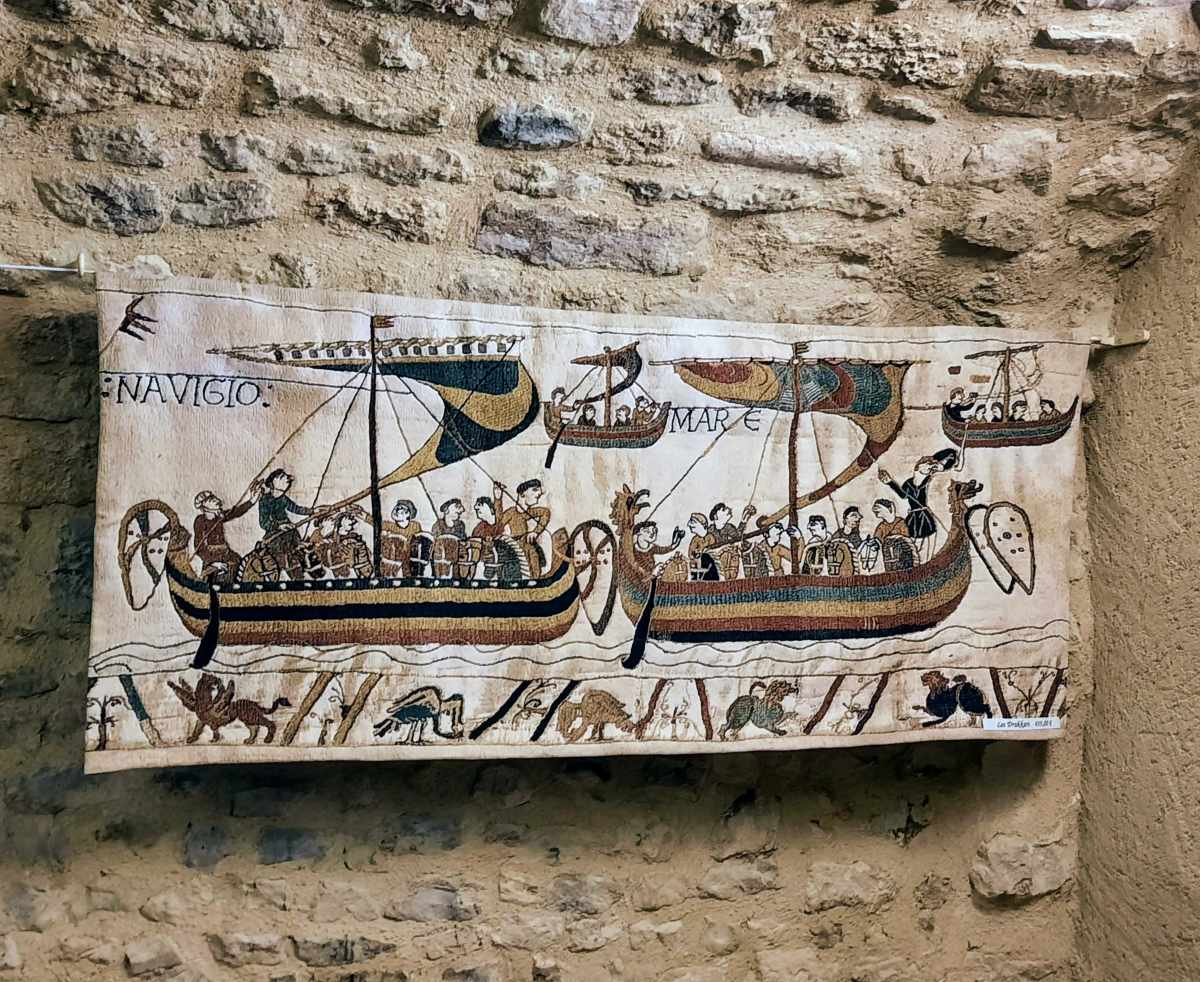 :NAVIGIO:
MARE
Les Drakkars